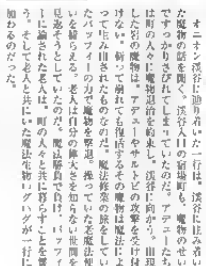 オニオン渓谷に辿り着いた一行は、渓谷に住み着い
た魔物の話を聞く。渓谷入口の宿場町も、魔物のせい
ですっかりさびれてしまっていたのだ。アデューたち
は町の人々に魔物退治を約束し、渓谷に向かう。出現
した岩の魔物は、アデューやサルトビの攻撃を受け付
けない。斬って崩れても復活するその魔物は魔法によ
って生み出されたものなのだ。魔法修業の旅をしてい
たパッフィーの力で魔物を撃退。操っていた老魔法使
いを捕らえる。老人は自分の偉大さを知らない世間を
見返そうとしていたのだ。魔法勝負で負け、パッフィ
ーに諭された老人は、町の人々と共に暮らすことを誓
う。そして老人と共にいた魔法生物
が一行に
加わるのだった。